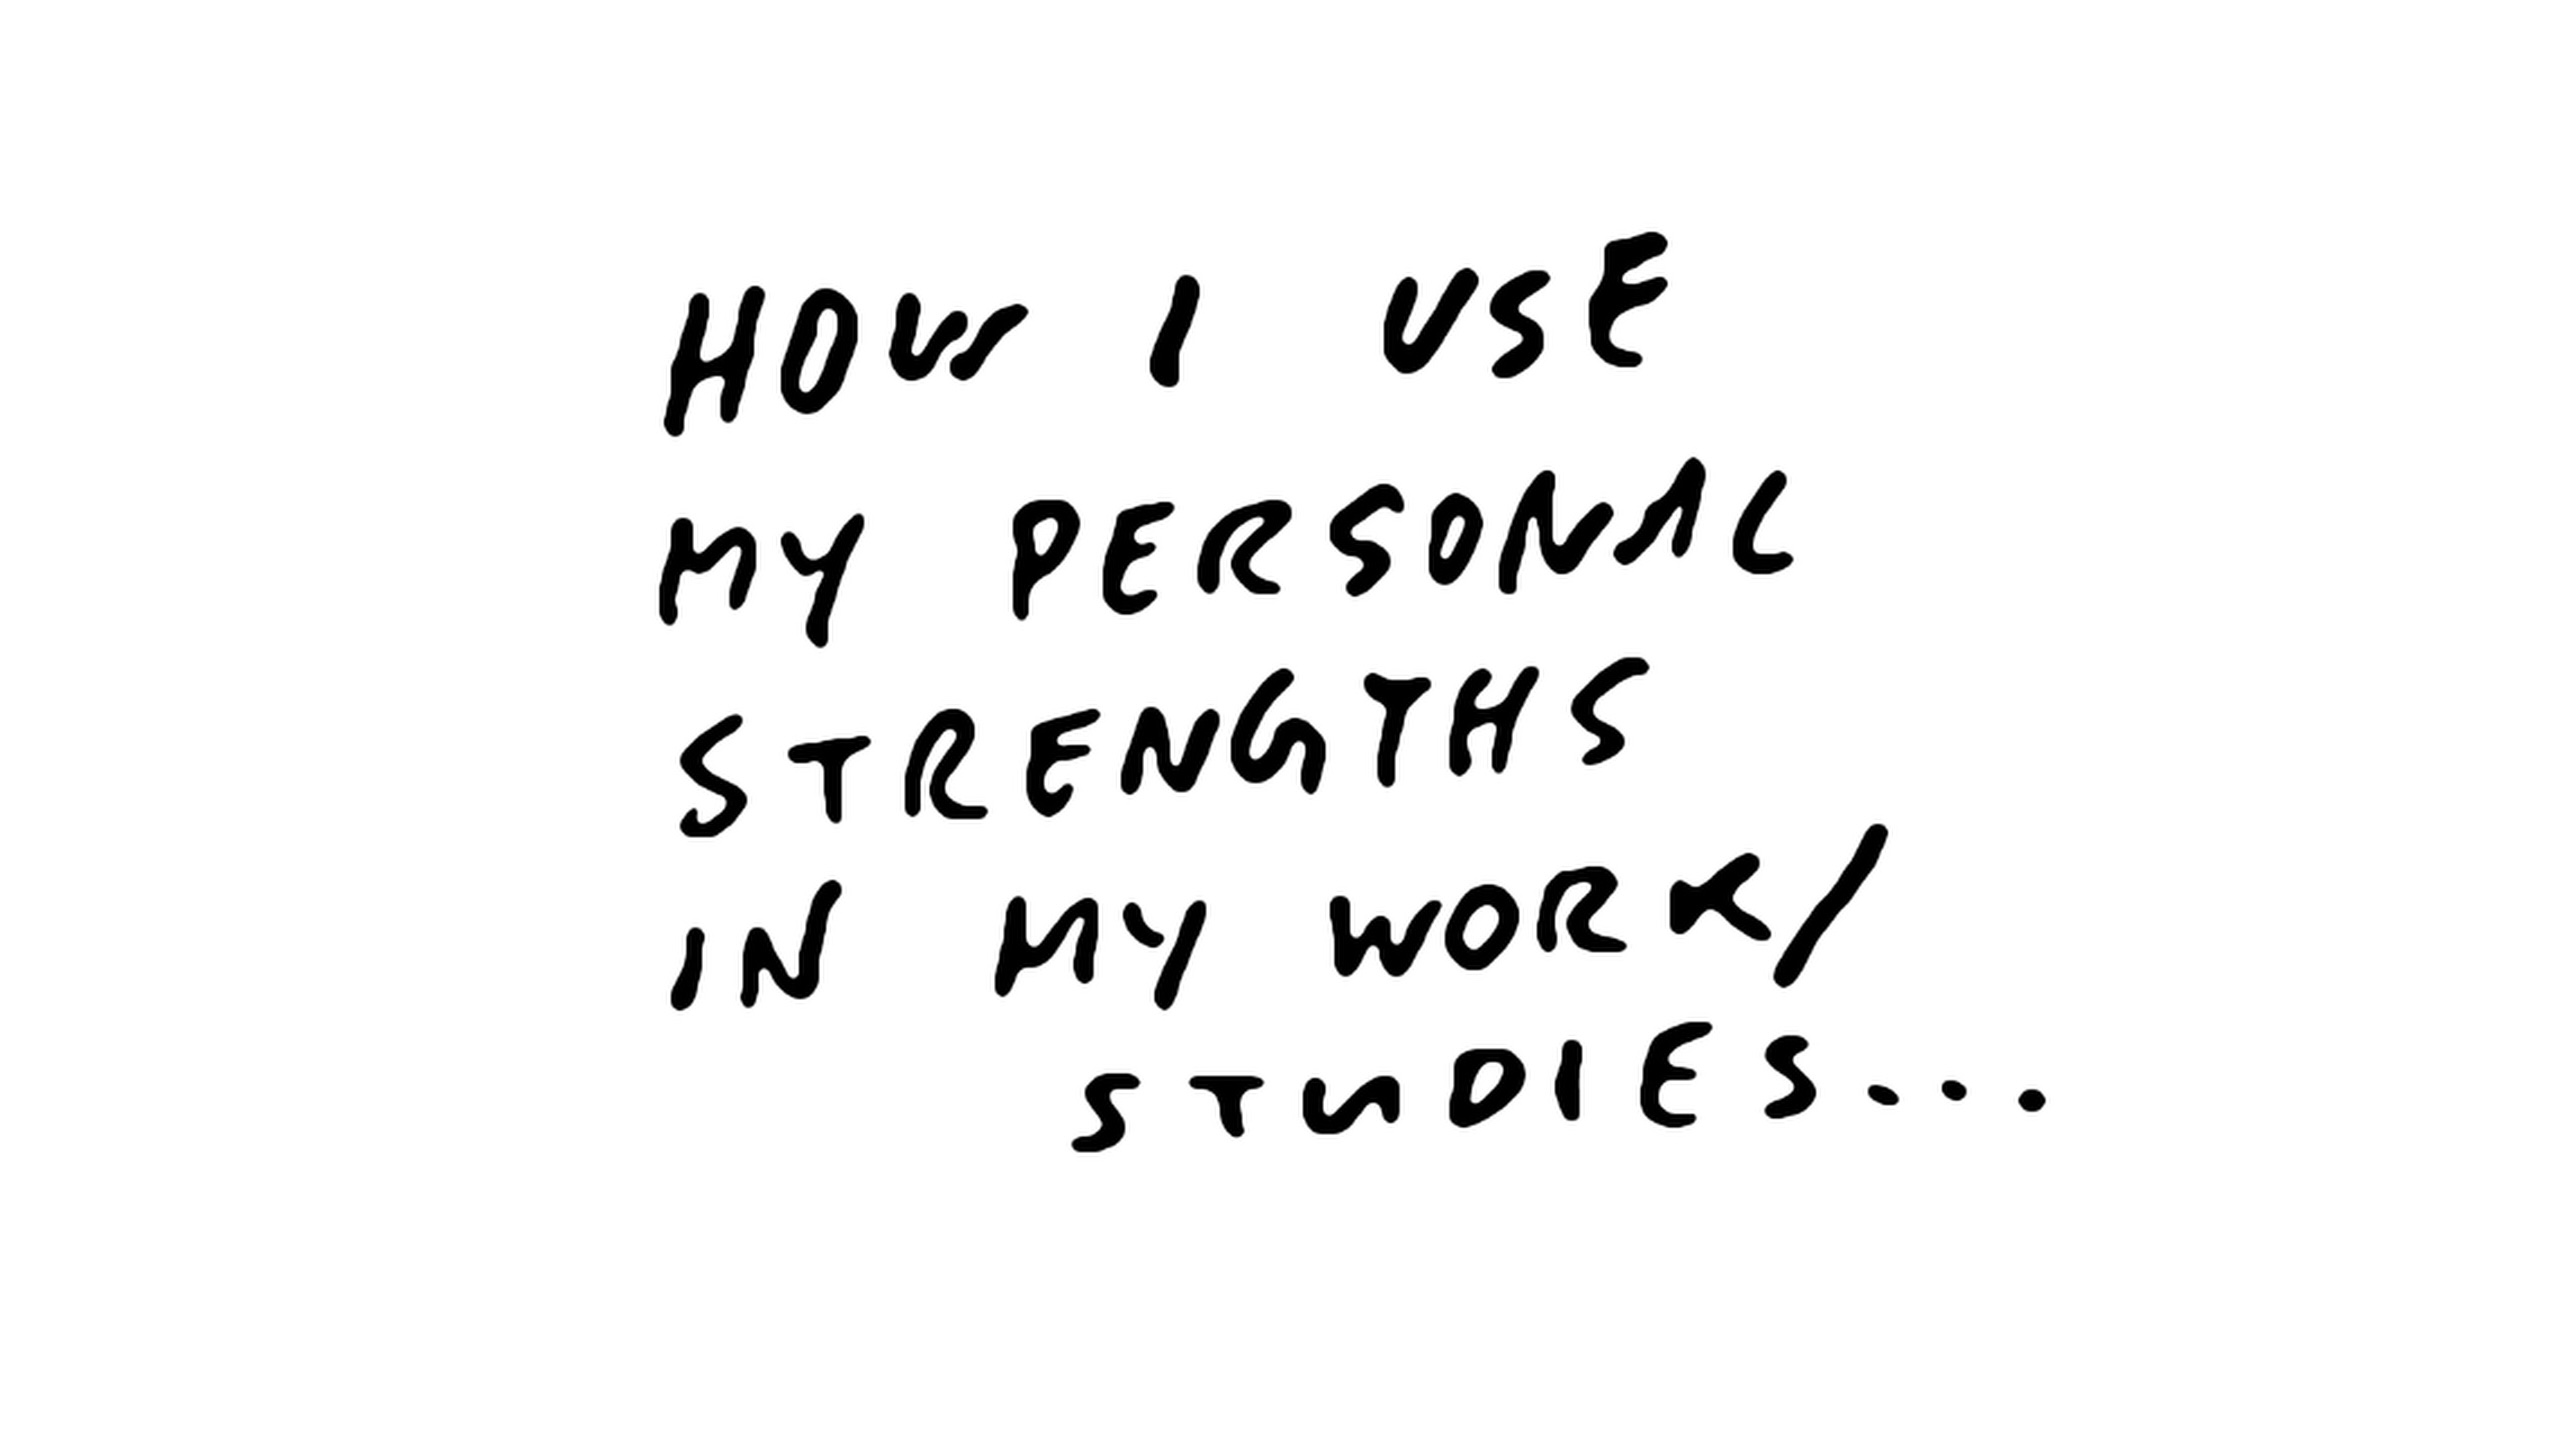 HOW I USE
MY PERSONAL
STRENGTHS
IN MY WORK/
STUDIES...